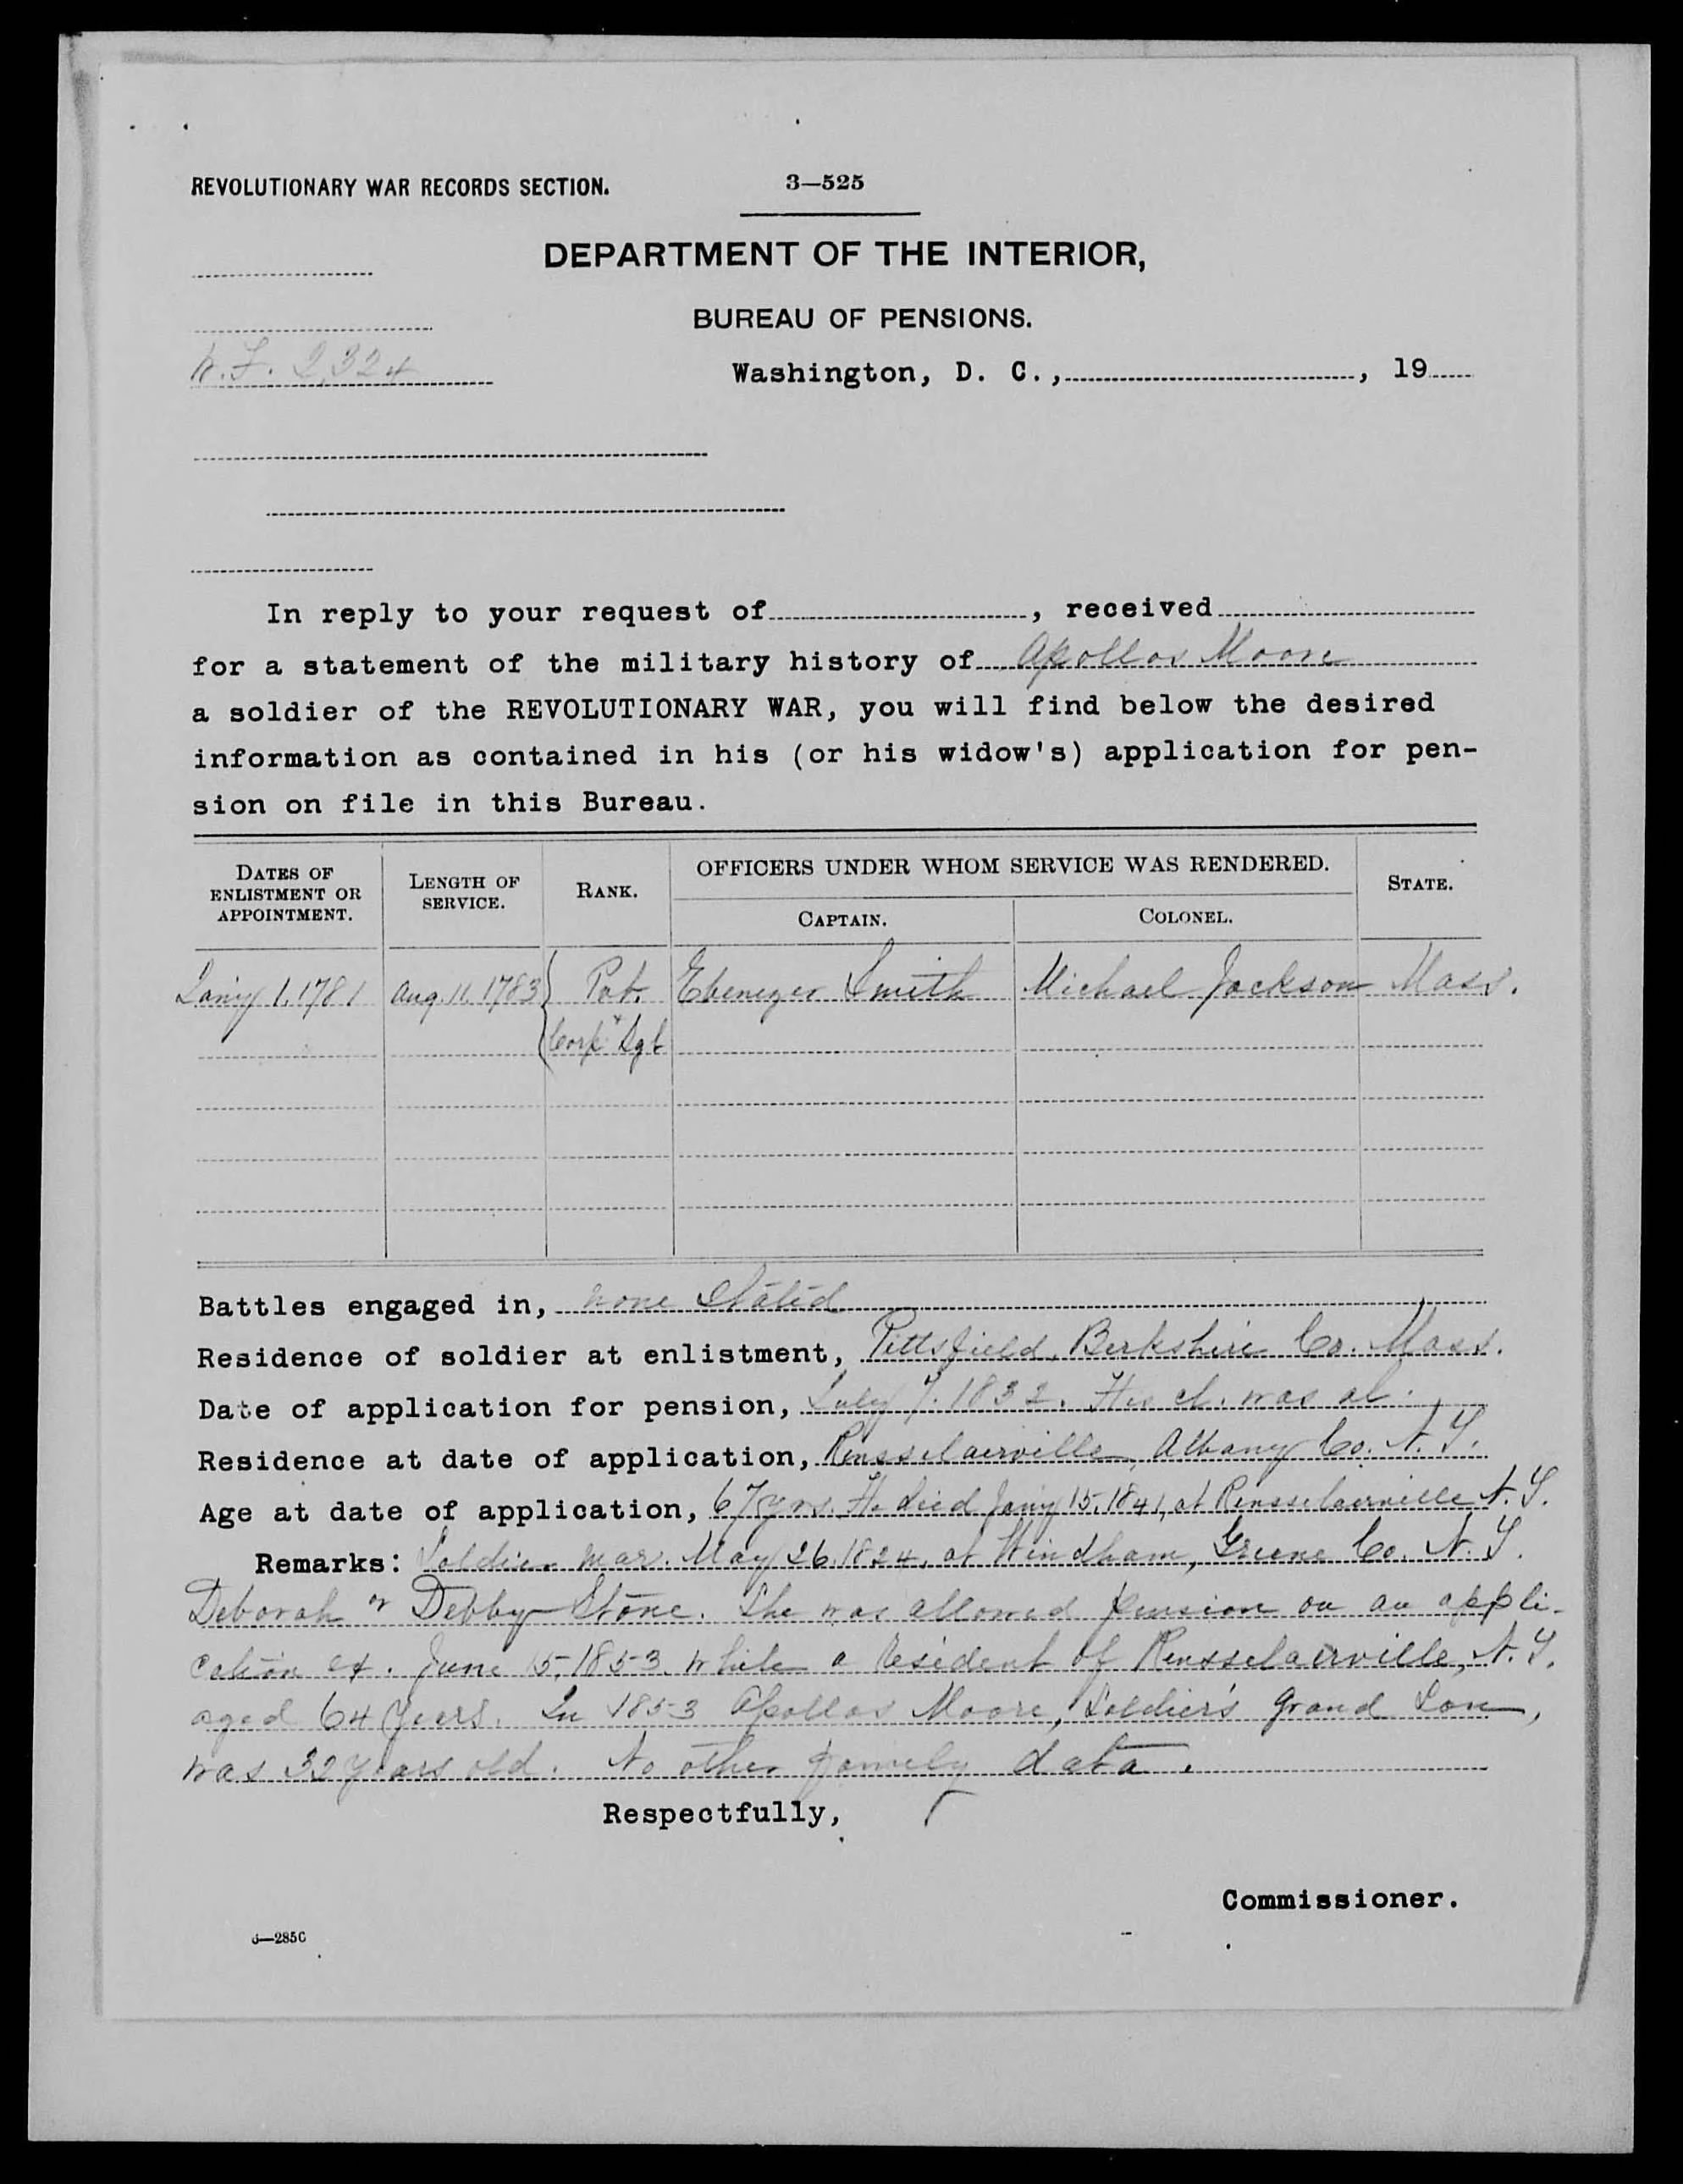 REVOLUTIONARY WAR RECORDS SECTION.
3—525
DEPARTMENT OF THE INTERIOR,
BUREAU OF PENSIONS.
W.F. 2,324
Washington, D. C., , 19
In reply to your request of , received
for a statement of the military history of Apollos Moore
a soldier of the REVOLUTIONARY WAR, you will find below the desired
information as contained in his (or his widow's) application for pen-
sion on file in this Bureau.
DATES OF ENLISTMENT OR APPOINTMENT.
LENGTH OF SERVICE.
RANK.
OFFICERS UNDER WHOM SERVICE WAS RENDERED.
CAPTAIN.
COLONEL.
STATE.
Jany 1. 1781 Aug. 11. 1783 Pvt. Ebenezer Smith Michael Jackson Mass.
Corp & Sgt
Battles engaged in, none Stated
Residence of soldier at enlistment, Pittsfield, Berkshire Co. Mass.
Date of application for pension, July 7. 1832. His cl. was al.
Residence at date of application, Rensselaerville, Albany Co. N.Y.
Age at date of application, 67 yrs. He died Jany 15. 1841, at Rensselaerville N.Y.
Remarks: Soldier mar. May 26. 1824, at Windham, Greene Co. N.Y.
Deborah or Debby Stone. She was allowed pension on an appli-
cation ex. June 15, 1853. while a resident of Rensselaerville, N.Y.
aged 64 years. In 1853 Apollos Moore, Soldier's Grand Son,
was 32 years old. No other family data.
Respectfully,
Commissioner.
6—2850